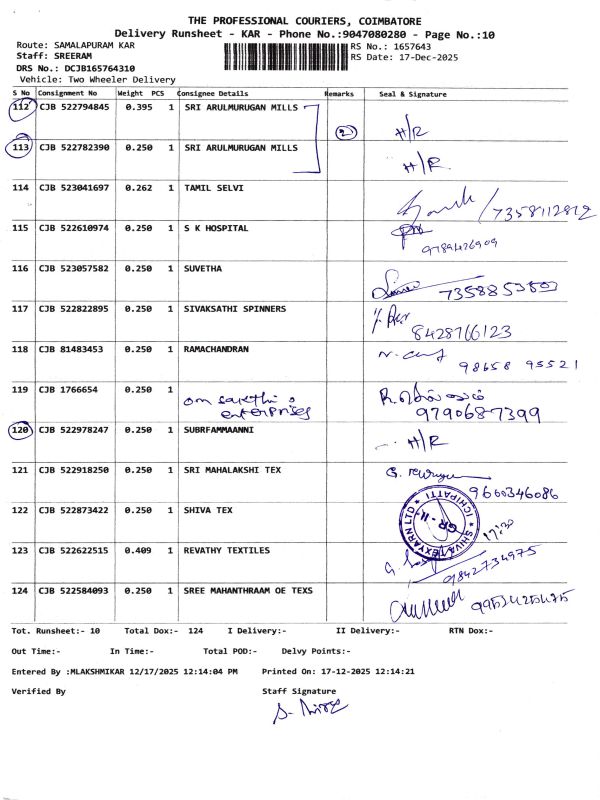 THE PROFESSIONAL COURIERS, COIMBATORE
Delivery Runsheet - KAR - Phone No.:9047080280 - Page No.:10
Route: SAMALAPURAM KAR RS No.: 1657643
Staff: SREERAM RS Date: 17-Dec-2025
DRS No.: DCJB165764310
Vehicle: Two Wheeler Delivery
S No Consignment No Weight PCS Consignee Details Remarks Seal & Signature
112 CJB 522794845 0.395 1 SRI ARULMURUGAN MILLS H/R
2
113 CJB 522782390 0.250 1 SRI ARULMURUGAN MILLS H/R
114 CJB 523041697 0.262 1 TAMIL SELVI
115 CJB 522610974 0.250 1 S K HOSPITAL
116 CJB 523057582 0.250 1 SUVETHA
117 CJB 522822895 0.250 1 SIVAKSATHI SPINNERS
8428766123
118 CJB 81483453 0.250 1 RAMACHANDRAN
98658 95521
119 CJB 1766654 0.250 1 om sakthi
enterprises
9790687399
120 CJB 522978247 0.250 1 SUBRFAMMAANNI H/R
121 CJB 522918250 0.250 1 SRI MAHALAKSHI TEX
9600346086
122 CJB 522873422 0.250 1 SHIVA TEX
SHIVA TEXYARN LTD
ICHIPATTI
GR-II
123 CJB 522622515 0.409 1 REVATHY TEXTILES
9842734975
124 CJB 522584093 0.250 1 SREE MAHANTHRAAM OE TEXS
Tot. Runsheet:- 10 Total Dox:- 124 I Delivery:- II Delivery:- RTN Dox:-
Out Time:- In Time:- Total POD:- Delvy Points:-
Entered By :MLAKSHMIKAR 12/17/2025 12:14:04 PM Printed On: 17-12-2025 12:14:21
Verified By Staff Signature